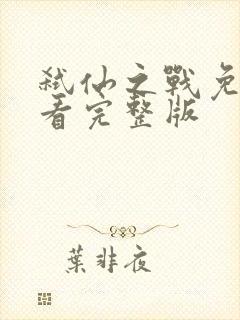 弑仙之戰免
看完整版
葉非夜